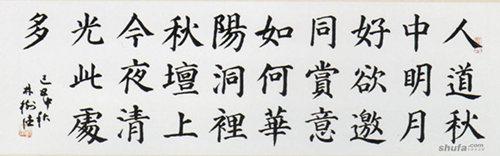 人道秋
中明月
好欲邀
同賞意
如何華
陽洞裡
秋壇上
今夜清
光此處
多
己丑中秋
shufa.com